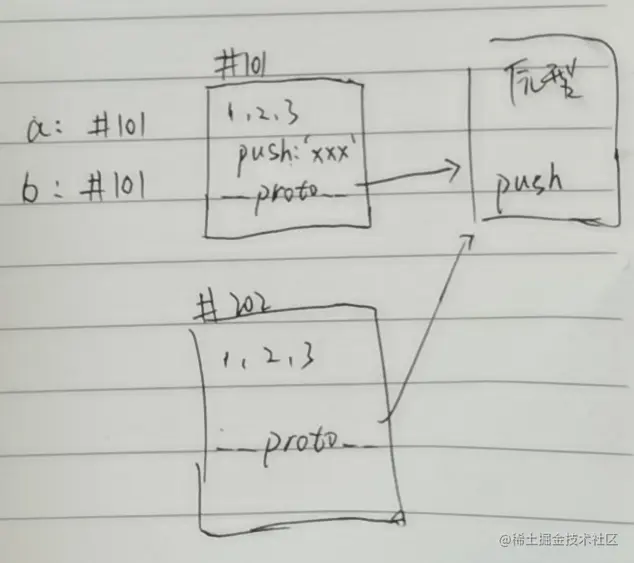 #101
1,2,3
push:'xxx'
__proto__
a: #101
b: #101
原型
push
#202
1,2,3
__proto__
@稀土掘金技术社区